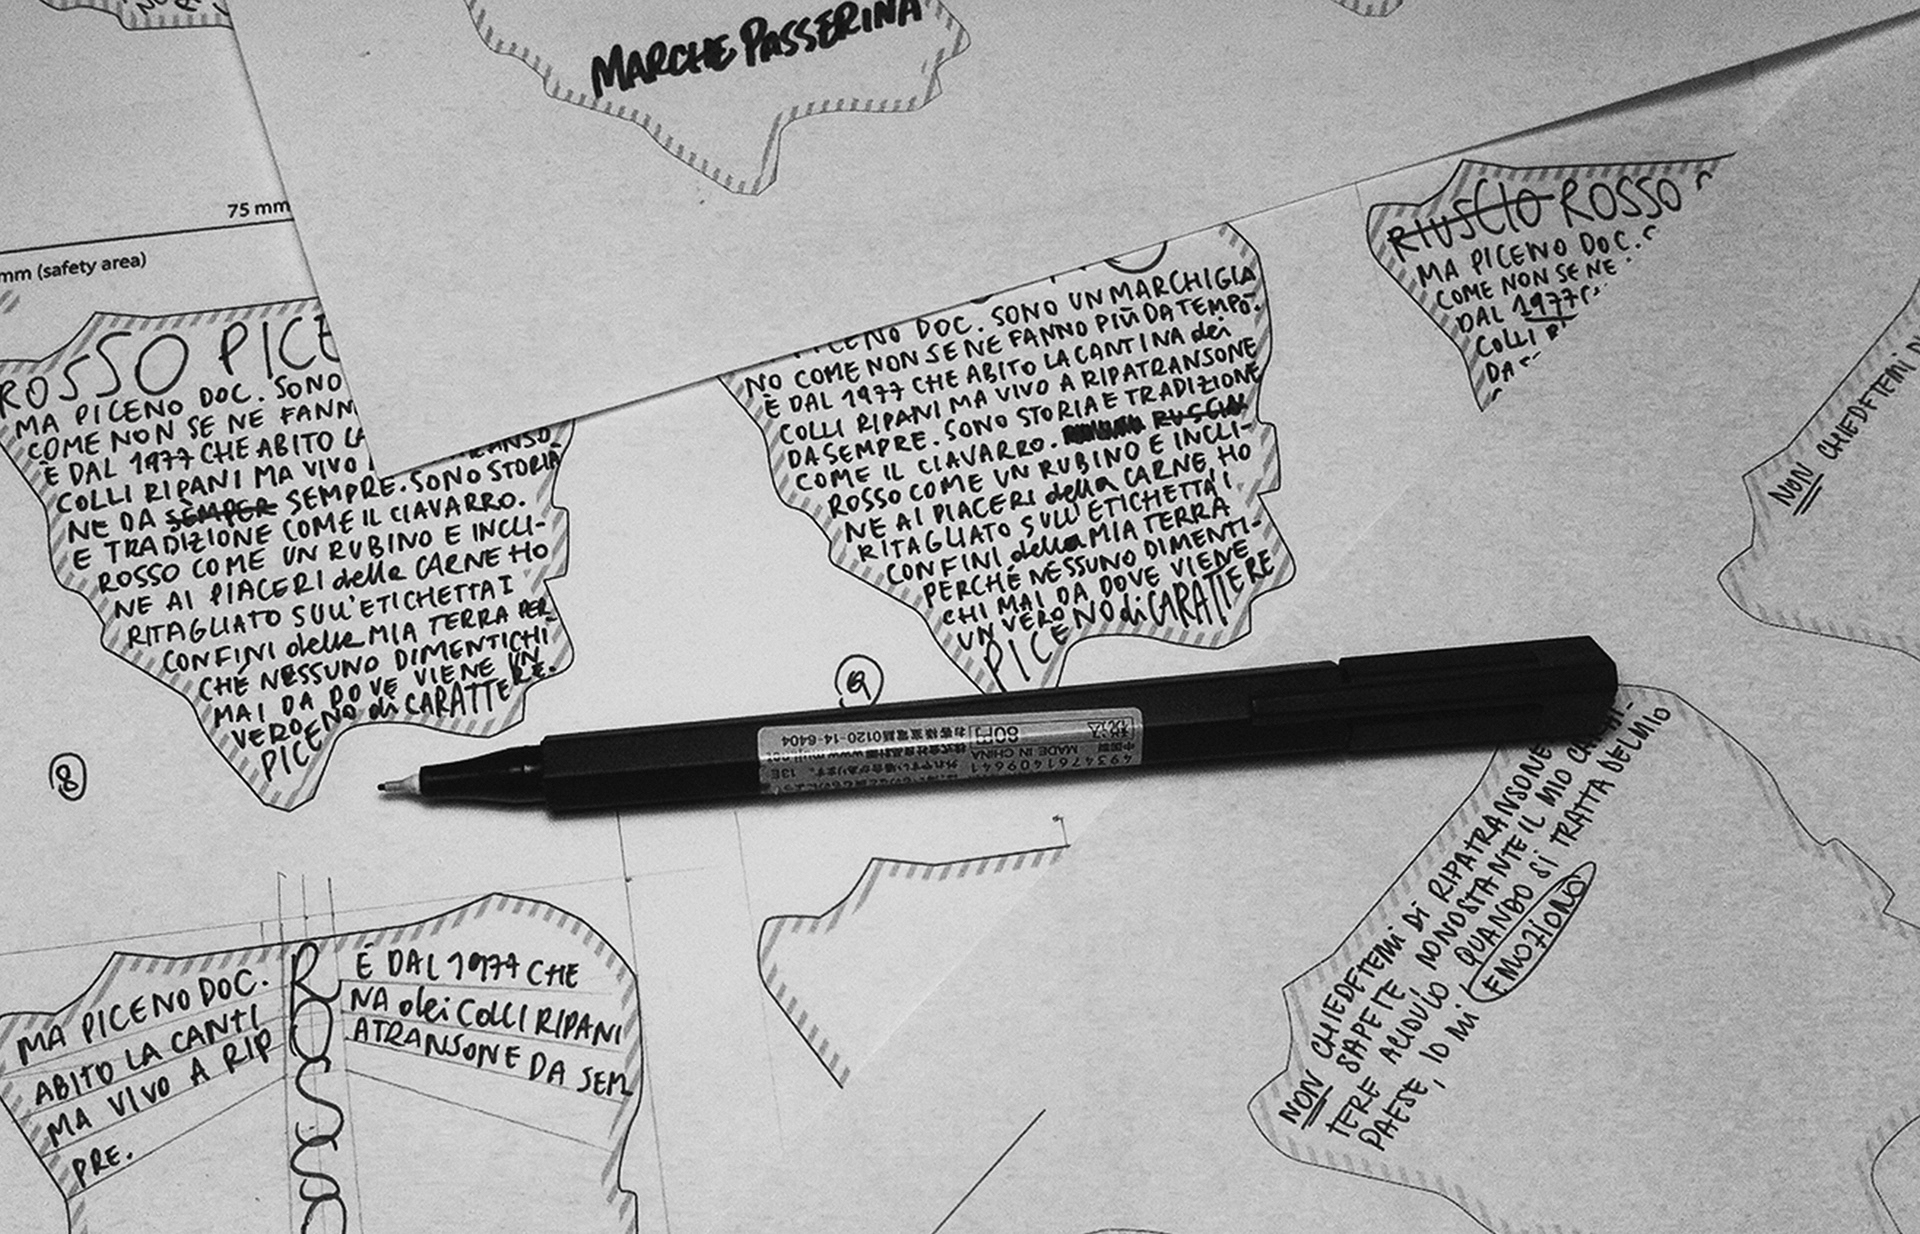 MARCHE PASSERINA
75 mm
mm (safety area)
ROSSO PICE
MA PICENO DOC. SONO
COME NON SE NE FANN
È DAL 1977 CHE ABITO LA
COLLI RIPANI MA VIVO
ANSO-
NE DA SEMPER SEMPRE. SONO STORIA
E TRADIZIONE COME IL CIAVARRO.
ROSSO COME UN RUBINO E INCLI-
NE AI PIACERI della CARNE HO
RITAGLIATO SULL'ETICHETTA I
CONFINI della MIA TERRA PER
CHÉ NESSUNO DIMENTICHI
MAI DA DOVE VIENE UN
VERO PICENO di CARATTERE.
8
PICENO DOC. SONO UN MARCHIGIA
NO COME NON SE NE FANNO PIÙ DA TEMPO.
È DAL 1977 CHE ABITO LA CANTINA dei
COLLI RIPANI MA VIVO A RIPATRANSONE
DA SEMPRE. SONO STORIA E TRADIZIONE
COME IL CIAVARRO.
ROSSO COME UN RUBINO E INCLI-
NE AI PIACERI della CARNE HO
RITAGLIATO SULL'ETICHETTA I
CONFINI della MIA TERRA
PERCHÉ NESSUNO DIMENTI-
CHI MAI DA DOVE VIENE
UN VERO
PICENO di CARATTERE
9
RIUSCIO ROSSO
MA PICENO DOC.
COME NON SE NE
DAL 1977
COLLI
DA
NON CHIEDETEMI D
お客様室電話0120-14-6404
税込 80円
株式会社良品計画 www.muji.net
中国製 MADE IN CHINA
4934761409641
NON CHIEDETEMI DI RIPATRANSONE
SAPETE, NONOSTANTE IL MIO
TERE ACIDULO QUANDO SI TRATTA DEL MIO
PAESE, IO MI EMOZIONO
MA PICENO DOC.
ABITO LA CANTI
MA VIVO A RIP
PRE.
ROSSO
È DAL 1977 CHE
NA dei COLLI RIPANI
ATRANSONE DA SEM